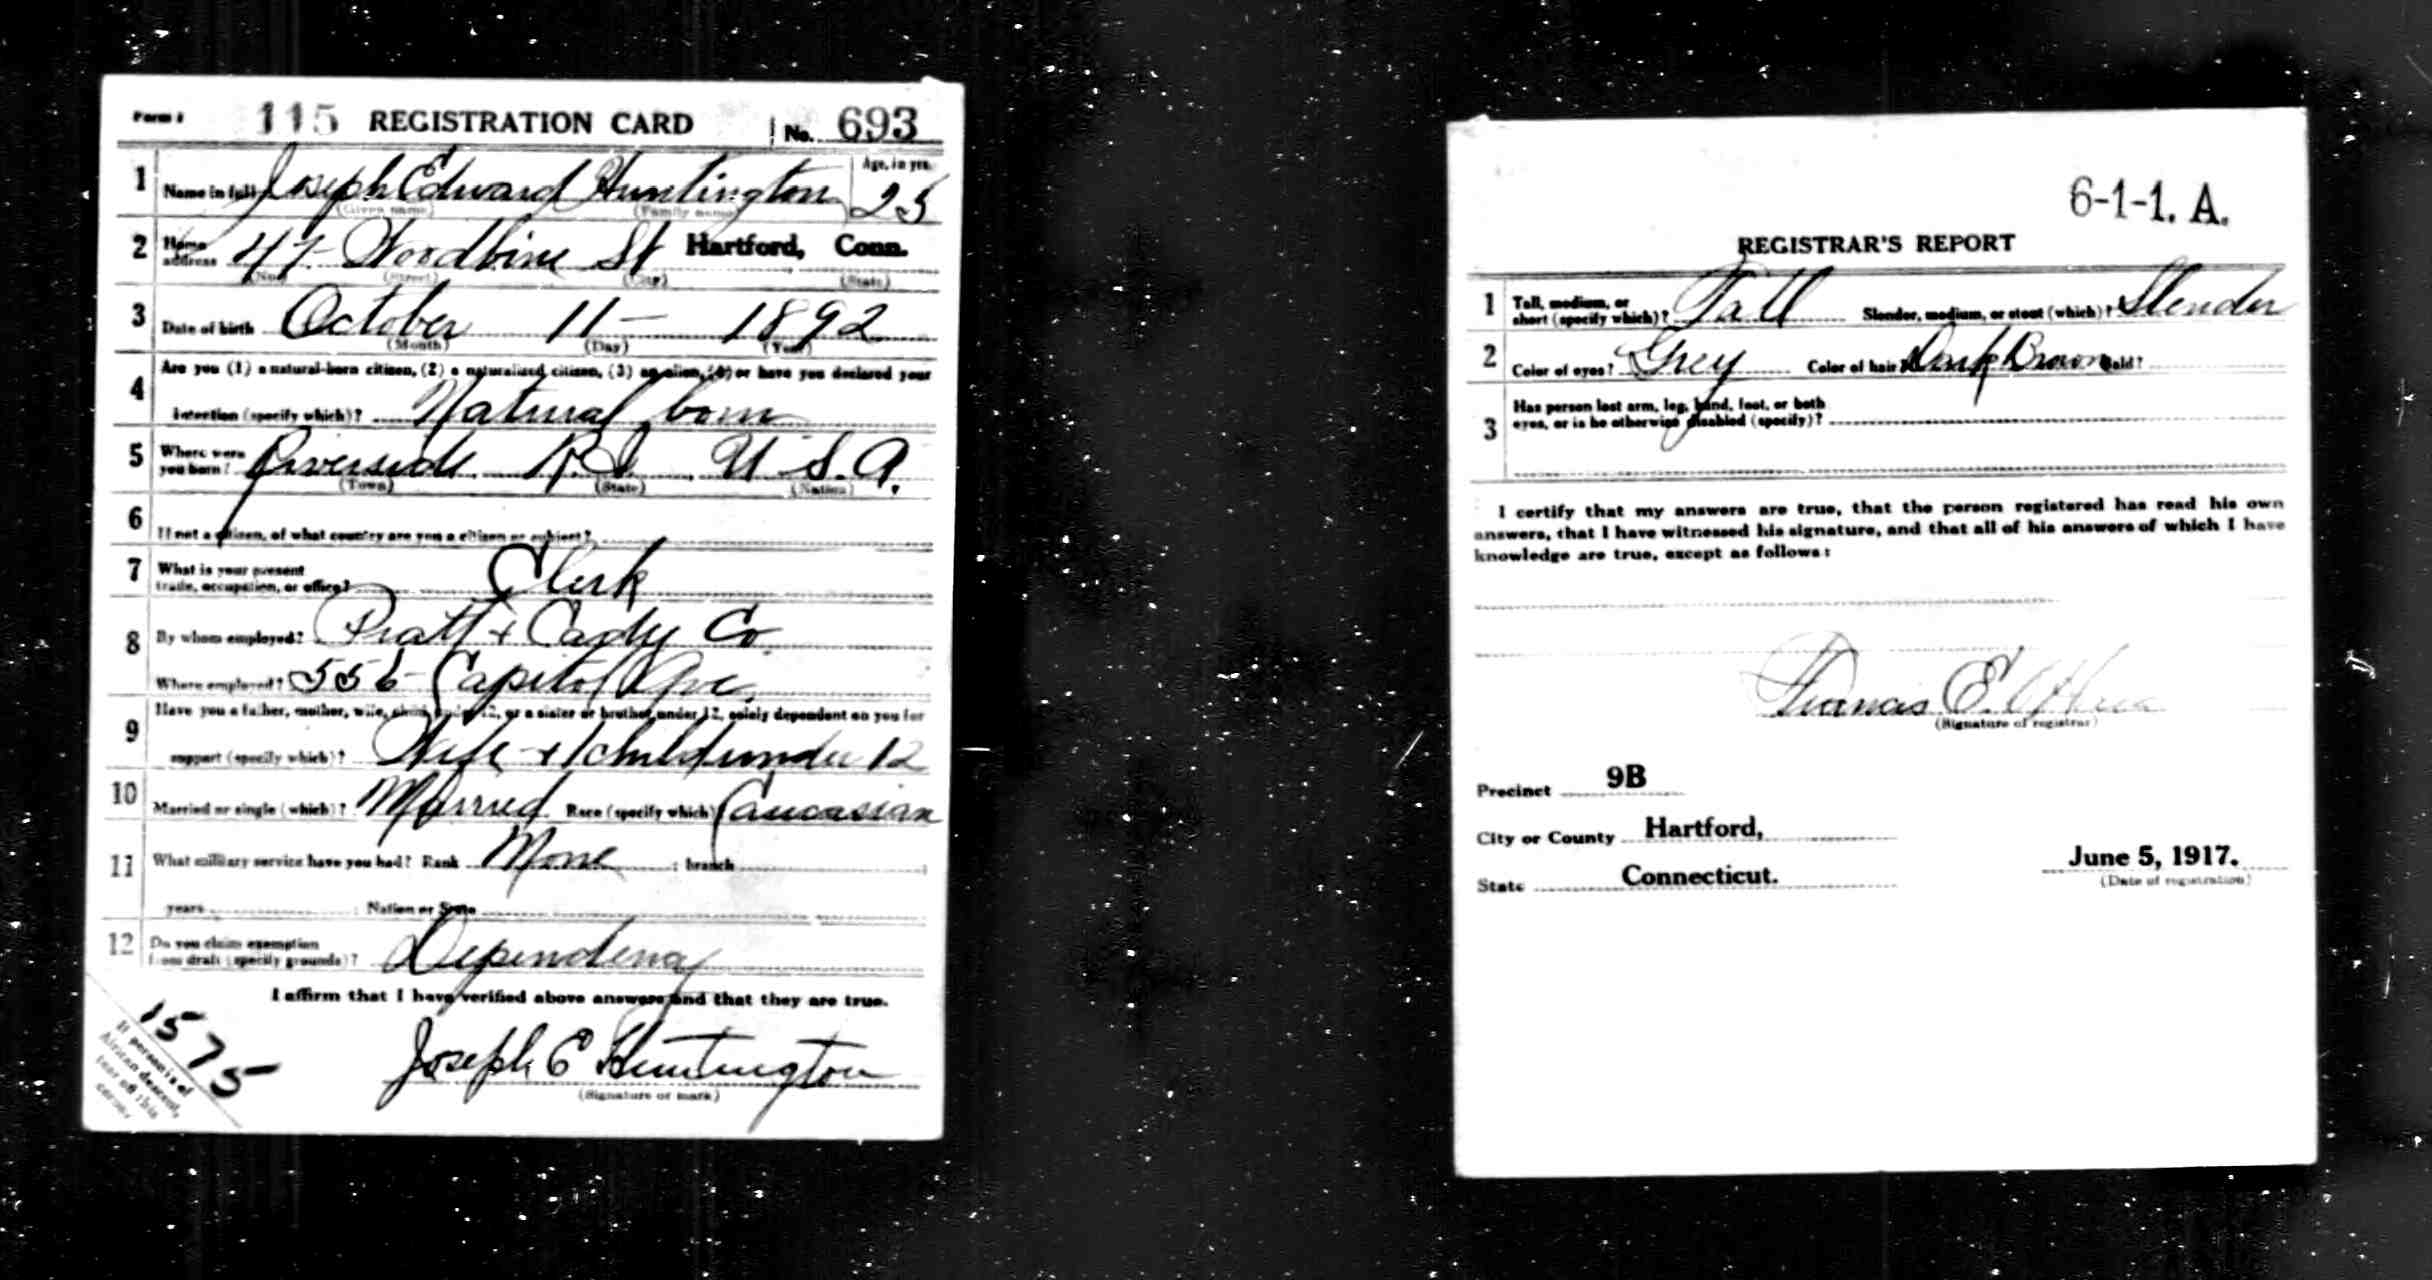 Form 1 115 REGISTRATION CARD No. 693
1 Name in full Joseph Edward Huntington Age, in yrs. 25
(Given name) (Family name)
2 Home address 47 Woodbine St Hartford, Conn.
(No.) (Street) (City) (State)
3 Date of birth October 11 - 1892
(Month) (Day) (Year)
4 Are you (1) a natural-born citizen, (2) a naturalized citizen, (3) an alien, (4) or have you declared your
intention (specify which)? Natural born
5 Where were you born? Riverside R.I. U.S.A.
(Town) (State) (Nation)
6 If not a citizen, of what country are you a citizen or subject?
7 What is your present trade, occupation, or office? Clerk
8 By whom employed? Pratt + Cady Co
Where employed? 556 Capitol Ave.
9 Have you a father, mother, wife, child under 12, or a sister or brother under 12, solely dependent on you for
support (specify which)? Wife + 1 child under 12
10 Married or single (which)? Married Race (specify which) Caucasian
11 What military service have you had? Rank None ; branch
years ; Nation or State
12 Do you claim exemption from draft (specify grounds)? Dependency
I affirm that I have verified above answers and that they are true.
Joseph E Huntington
(Signature or mark)
1575
If person is of
African descent,
tear off this
corner.
6-1-1. A.
REGISTRAR'S REPORT
1 Tall, medium, or short (specify which)? Tall Slender, medium, or stout (which)? Slender
2 Color of eyes? Grey Color of hair? Dark Brown Bald?
3 Has person lost arm, leg, hand, foot, or both
eyes, or is he otherwise disabled (specify)?
I certify that my answers are true, that the person registered has read his own
answers, that I have witnessed his signature, and that all of his answers of which I have
knowledge are true, except as follows:
Francis E.
(Signature of registrar)
Precinct 9B
City or County Hartford,
State Connecticut.
June 5, 1917.
(Date of registration)